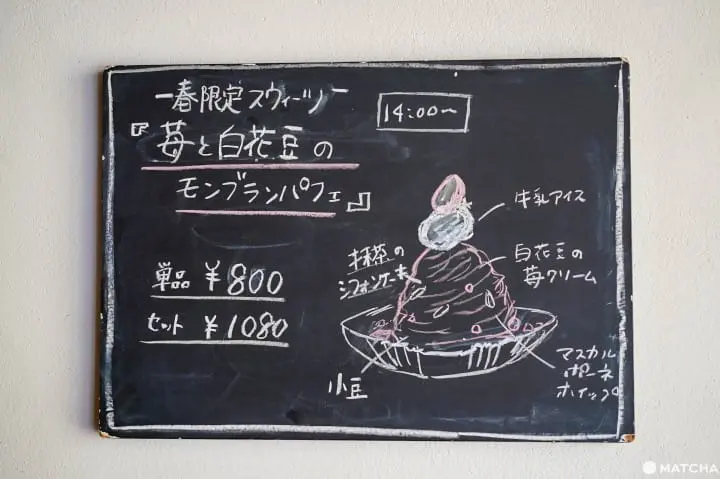 ー春限定スウィーツー
14:00〜
『苺と白花豆の
モンブランパフェ』
単品 ¥800
セット ¥1080
牛乳アイス
抹茶の
シフォンケーキ
白花豆の
苺クリーム
小豆
マスカル
ポーネ
ホイップ
MATCHA